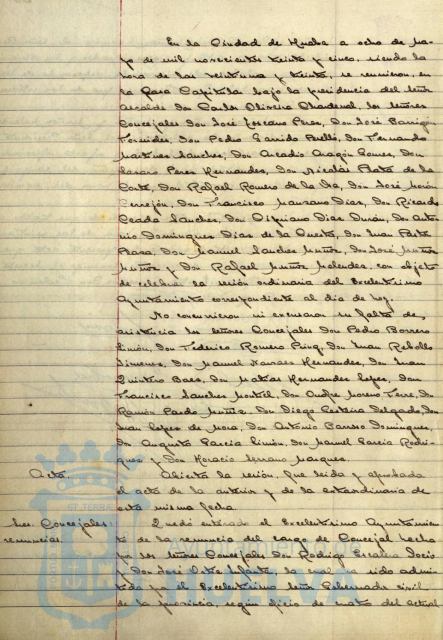 En la Ciudad de Huelva a ocho de Ma-
yo de mil novecientos treinta y cinco, siendo la
hora de las veintiuna y treinta, se reunieron, en
la Casa Capitular bajo la presidencia del señor
Alcalde Don Carlos Oliveira Chardenal, los señores
Concejales Don José Toscano Perez, Don José Barrigón
Fornieles, Don Pedro Garrido Perelló, Don Fernando
Martinez Sanchez, Don Arcadio Aragón Gomez, Don
Lazaro Perez Hernandez, Don Nicolás Plata de la
Corte, Don Rafael Romero de la Osa, Don José Morón
Cerrejón, Don Francisco Manzano Diaz, Don Ricardo
Ceada Sanchez, Don Cipriano Diaz Durán, Don Anto-
nio Dominguez Diaz de la Cuesta, Don Juan
Plaza, Don Manuel Sanchez Muñoz, Don José Muñoz
Muñoz y Don Rafael Muñoz Melendez, con objeto
de celebrar la sesión ordinaria del Excelentísimo
Ayuntamiento correspondiente al dia de hoy.
No concurrieron ni excusaron su falta de
asistencia los señores Concejales Don Pedro Borrero
Limón, Don Federico Romero Don Juan Rebollo
Jimenez, Don Manuel Narvaez Hernandez, Don Juan
Quintero Baez, Don Matías Hernandez Lopez, Don
Francisco Sanchez Don Andre Moreno Don
Ramón Pardo Muñiz, Don Diego Delgado, Don
Juan Lopez de Mora, Don Antonio Barroso Dominguez,
Don Augusto Garcia Limón, Don Manuel Garcia Rodri-
guez y Don Horacio Serrano Marquez.
Acta. Abierta la sesión, fué leida y aprobada
el acta de la anterior y de la extraordinaria de
esta misma fecha.
Concejales Quedó enterado el Excelentísimo Ayuntamien-
renuncias. to de la renuncia del cargo de Concejal hecha
por los señores Concejales Don Rodrigo Escalera
y Don José Infante, la cual ha sido admi-
tida por el Excelentísimo señor Gobernador civil
de la provincia, según oficio de cuatro del actual